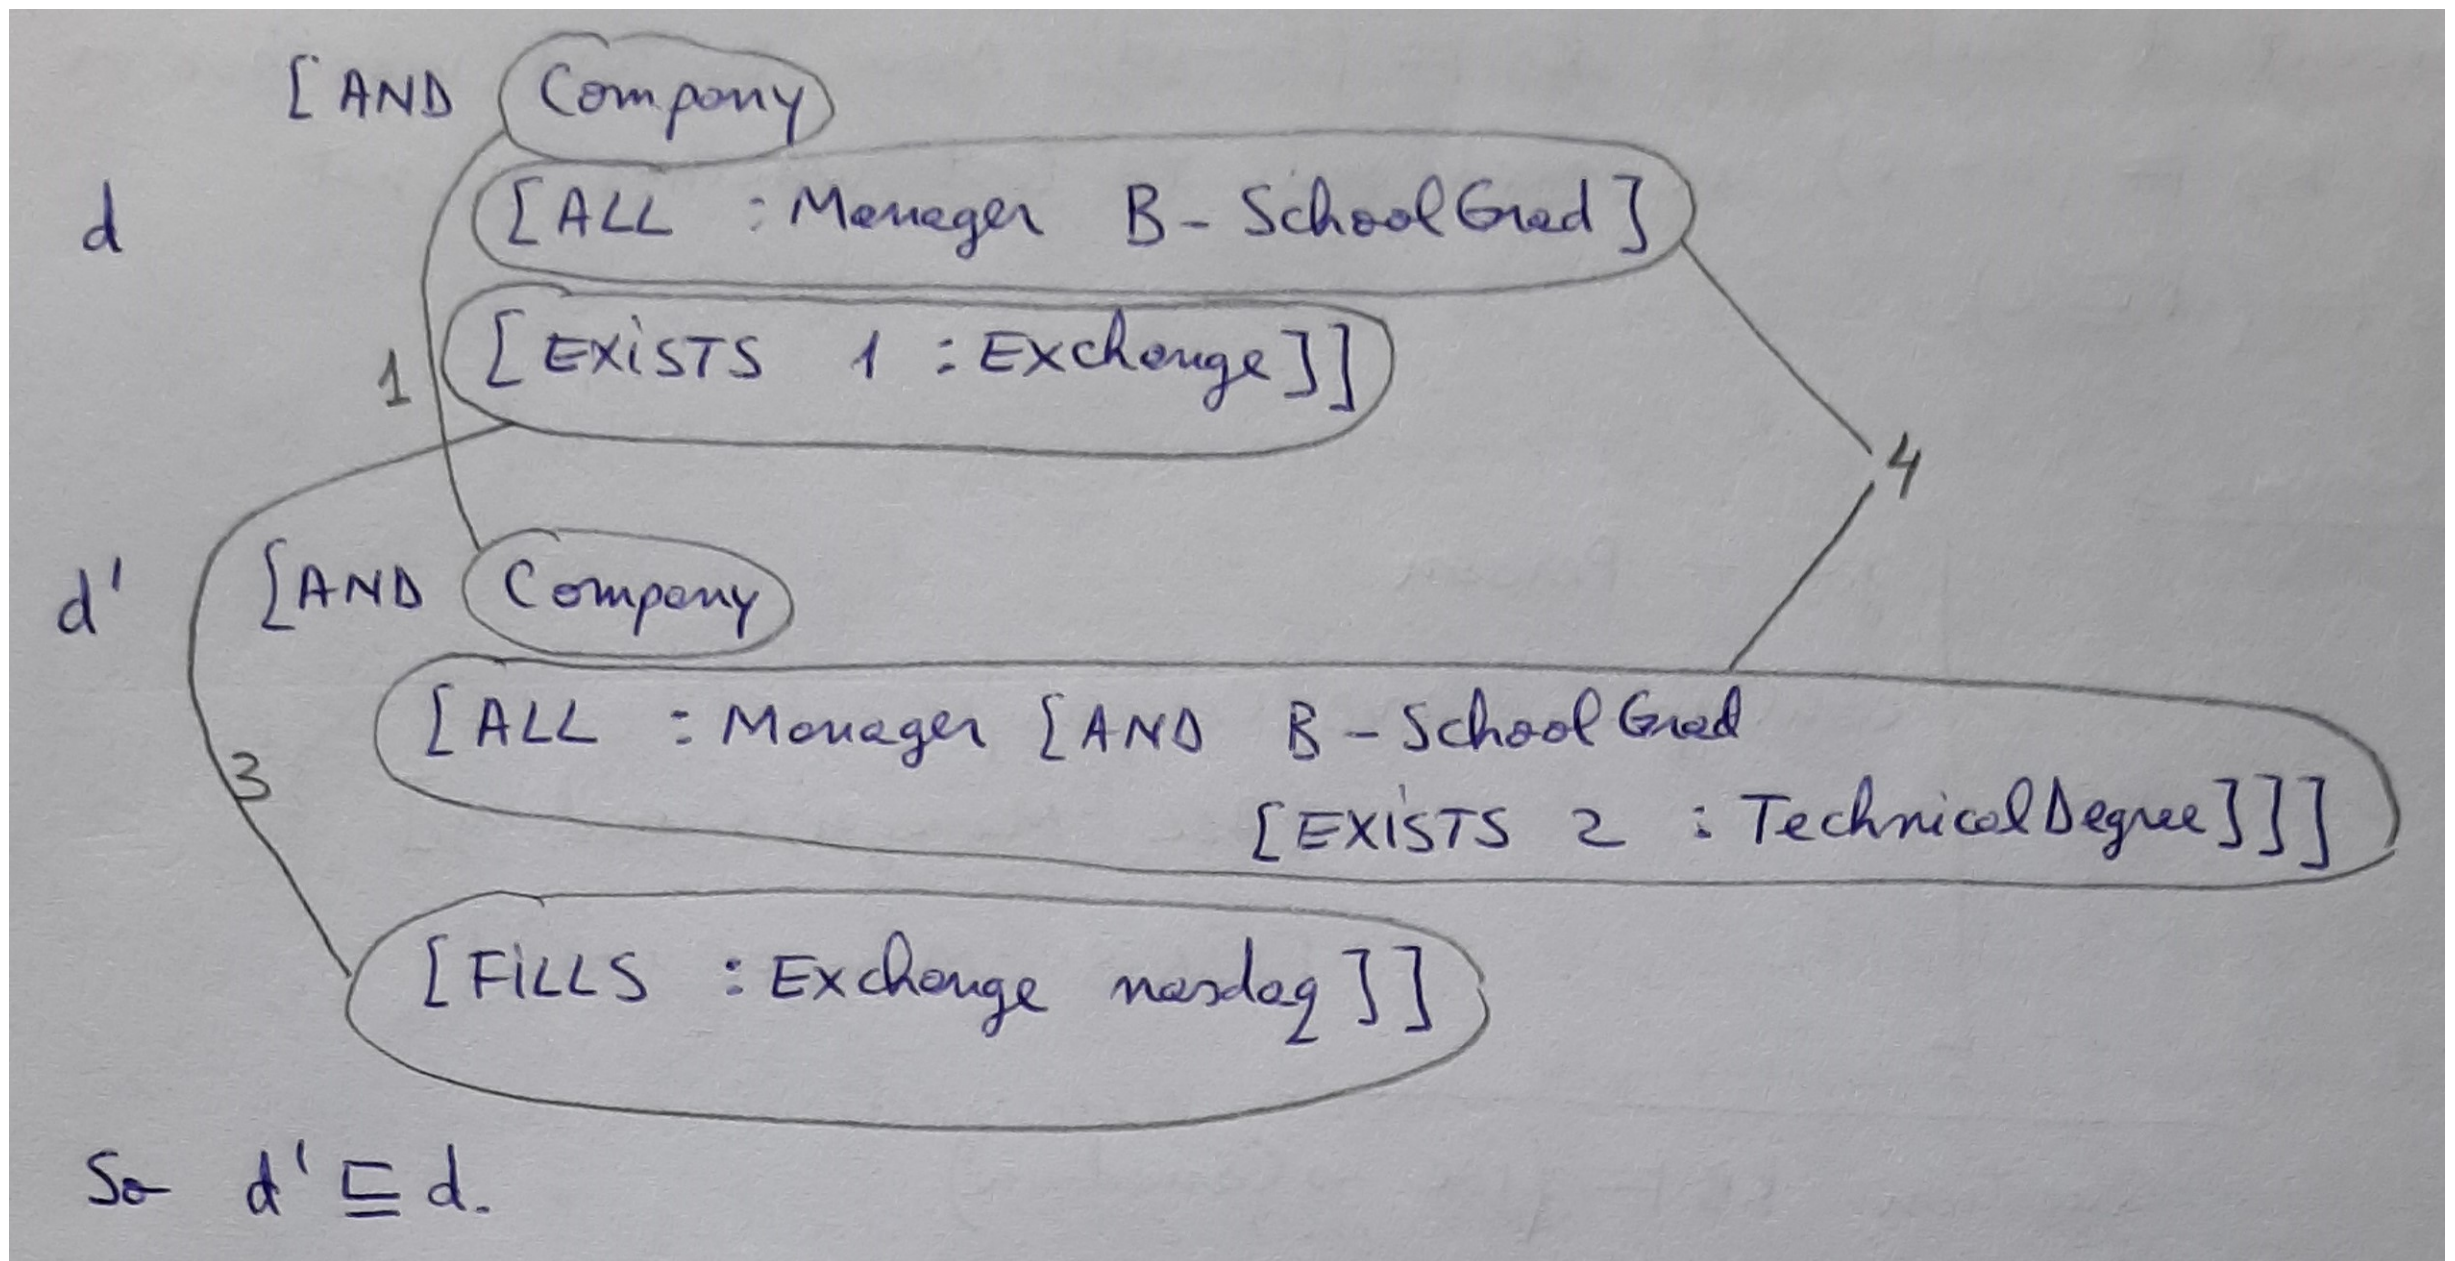 [AND Company
d [ALL :Manager B-SchoolGrad]
1 [EXISTS 1 :Exchange]]
4
d' [AND Company
[ALL :Manager [AND B-SchoolGrad
3 [EXISTS 2 :TechnicalDegree]]]
[FILLS :Exchange nasdaq]]
So d' ⊑ d.